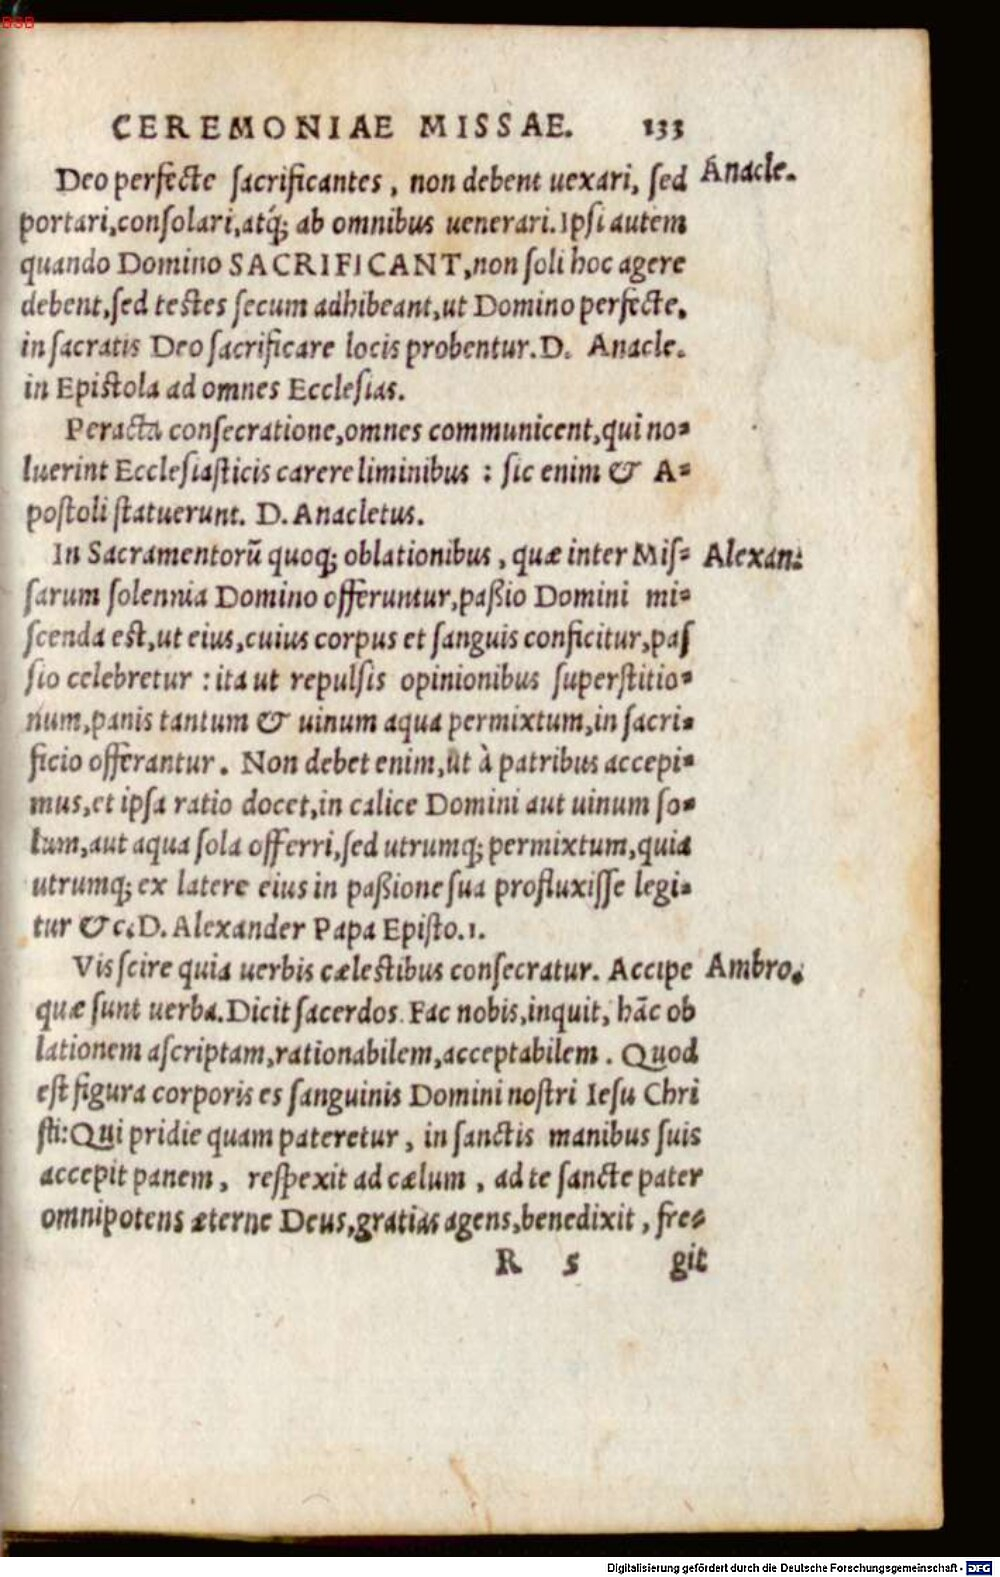 BSB
CEREMONIAE MISSAE. 133
Deo perfecte sacrificantes, non debent uexari, sed Anacle.
portari, consolari, atq́; ab omnibus uenerari. Ipsi autem
quando Domino SACRIFICANT, non soli hoc agere
debent, sed testes secum adhibeant, ut Domino perfecte.
in sacratis Deo sacrificare locis probentur. D. Anacle.
in Epistola ad omnes Ecclesias.
Peracta consecratione, omnes communicent, qui no-
luerint Ecclesiasticis carere liminibus : sic enim & A-
postoli statuerunt. D. Anacletus.
In Sacramentorũ quoq; oblationibus, quæ inter Mis- Alexan:
sarum solennia Domino offeruntur, paßio Domini mi-
scenda est, ut eius, cuius corpus et sanguis conficitur, pas
sio celebretur : ita ut repulsis opinionibus superstitio-
num, panis tantum & uinum aqua permixtum, in sacri-
ficio offerantur. Non debet enim, ut à patribus accepi-
mus, et ipsa ratio docet, in calice Domini aut uinum so-
lum, aut aqua sola offerri, sed utrumq; permixtum, quia
utrumq; ex latere eius in paßione sua profluxisse legi-
tur &c. D. Alexander Papa Episto. 1.
Vis scire quia uerbis cælestibus consecratur. Accipe Ambro.
quæ sunt uerba. Dicit sacerdos. Fac nobis, inquit, hãc ob
lationem ascriptam, rationabilem, acceptabilem. Quod
est figura corporis es sanguinis Domini nostri Iesu Chri
sti: Qui pridie quam pateretur, in sanctis manibus suis
accepit panem, respexit ad cælum, ad te sancte pater
omnipotens æterne Deus, gratias agens, benedixit, fre-
R 5 git
Digitalisierung gefördert durch die Deutsche Forschungsgemeinschaft - DFG